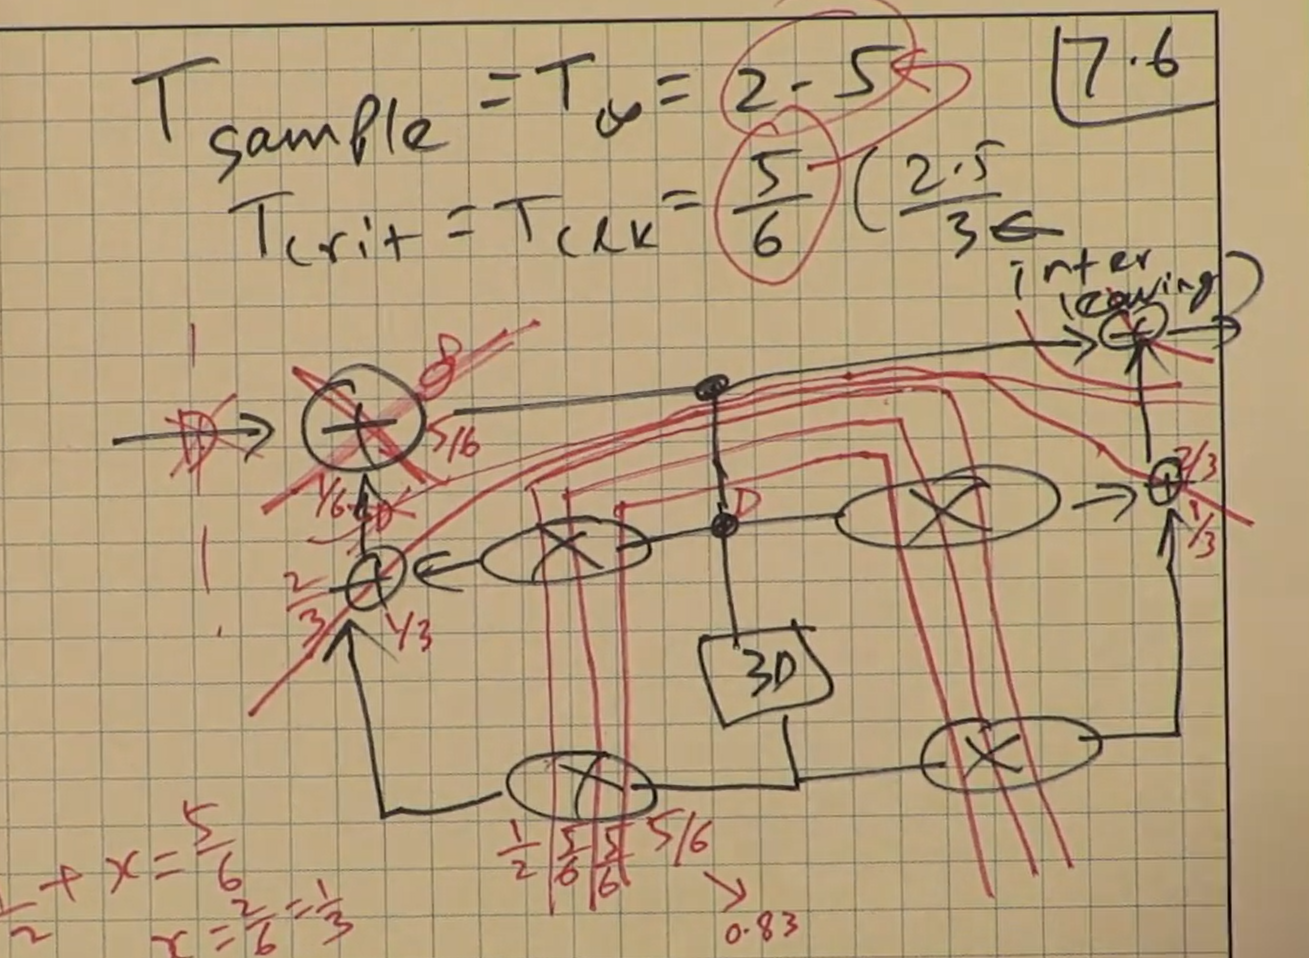 T sample = T∞ = 2 - 5
7.6
Tcrit = Tclk = 5/6 (2.5/3
inter
leaving)
8
+
5/6
1/6
D
+
2/3
1/3
×
D
×
+
2/3
1/3
3D
×
×
1/2 5/6 5/6 5/6
0.83
1/2 + x = 5/6
x = 2/6 = 1/3